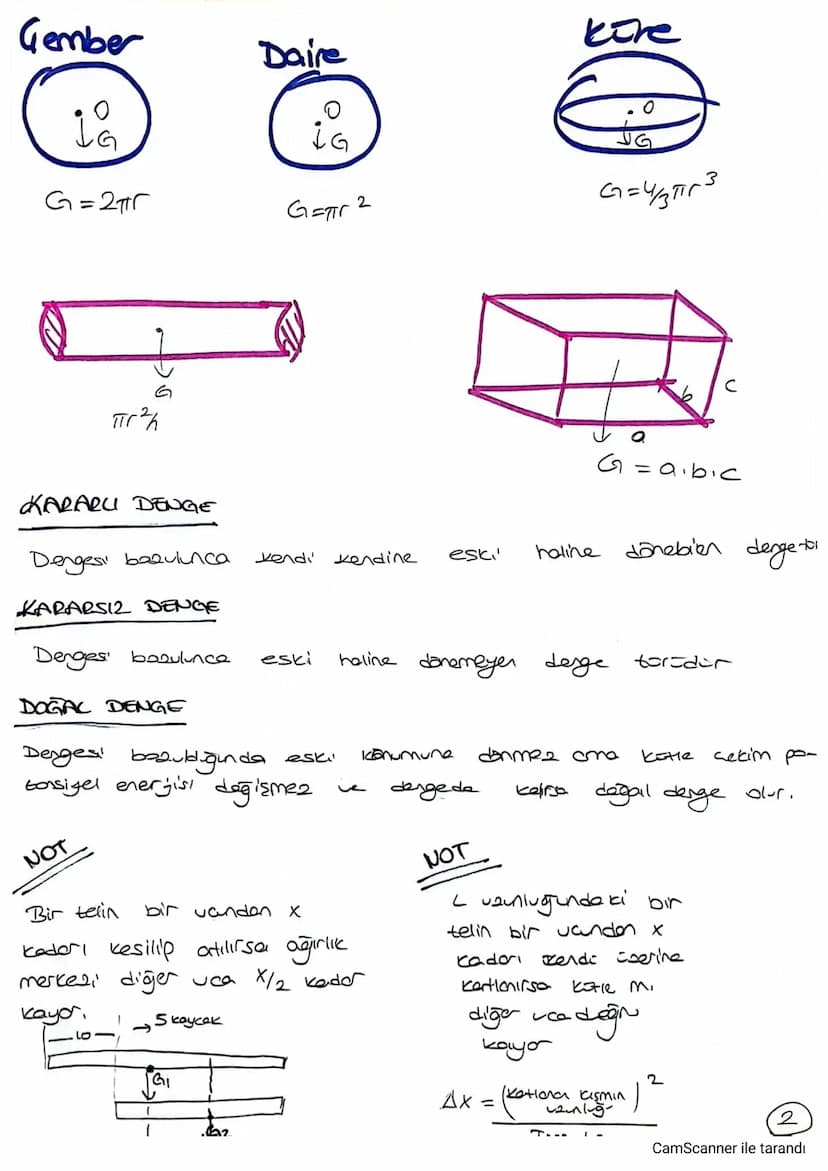 Çember
Daire
Küre
O
G
O
G
O
G
G=2πr
G=πr²
G=4/3πr³
G
πr²h
b
c
a
G = a.b.c
KARARLI DENGE
Dengesi bozulunca kendi kendine eski haline dönebilen denge
KARARSIZ DENGE
Dengesi bozulunca eski haline dönemeyen denge türüdür
DOĞAL DENGE
Dengesi bozulduğunda eski konumuna dönmez ama kütle çekim po-
tansiyel enerjisi değişmez ve dengede kalırsa doğal denge olur.
NOT
Bir telin bir ucundan x
kadarı kesilip atılırsa ağırlık
merkezi diğer uca x/2 kadar
kayar.
10
→ 5 kayacak
G1
G2
NOT
L uzunluğundaki bir
telin bir ucundan x
kadarı kendi üzerine
katlanırsa kütle m.
diğer uca doğru
kayar
Δx = (katlanan kısmın uzunluğu)²
2
CamScanner ile tarandı